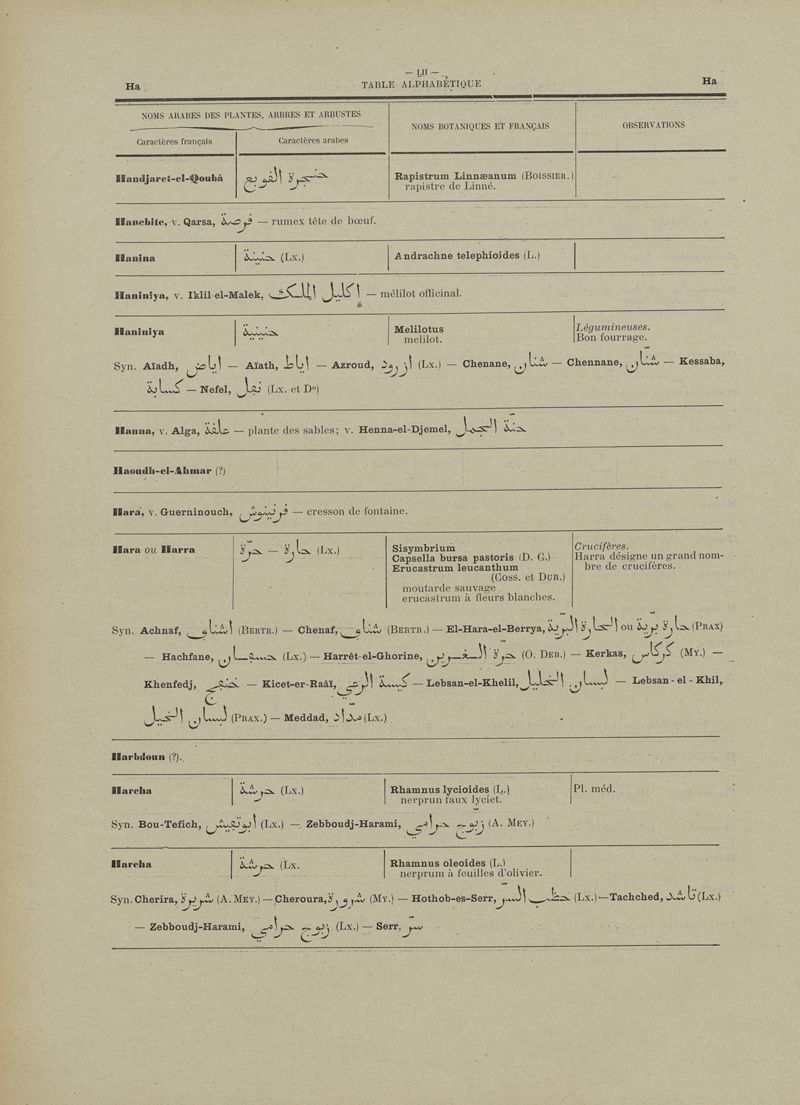 — LII —
Ha
TABLE ALPHABÉTIQUE
Ha
NOMS ARABES DES PLANTES, ARBRES ET ARBUSTES
NOMS BOTANIQUES ET FRANÇAIS
OBSERVATIONS
Caractères français
Caractères arabes
Handjaret-el-Qoubâ
Rapistrum Linnæanum (BOISSIER.)
rapistre de Linné.
Hanebite, v. Qarsa, قرصة — rumex tête de bœuf.
Hanina حنينة (Lx.) Andrachne telephioides (L.)
Haniniya, v. Iklil-el-Malek, اكليل الملك — mélilot officinal.
Haniniya حنينية Melilotus Légumineuses.
melilot. Bon fourrage.
Syn. Aïadh, اياض — Aïath, اياط — Azroud, ازرود (Lx.) — Chenane, شنان — Chennane, شنان — Kessaba,
كسابة — Nefel, نفل (Lx. et Do)
Hanna, v. Alga, علقة — plante des sables; v. Henna-el-Djemel, حنة الجمل
Haoudh-el-Ahmar (?)
Hara, v. Guerninouch, قرنينوش — cresson de fontaine.
Hara ou Harra حرّة — حارة (Lx.) Sisymbrium Crucifères.
Capsella bursa pastoris (D. C.) Harra désigne un grand nom-
Erucastrum leucanthum bre de crucifères.
(Coss. et DUR.)
moutarde sauvage
erucastrum à fleurs blanches.
Syn. Achnaf, اشناف (BERTR.) — Chenaf, شناف (BERTR.) — El-Hara-el-Berrya, الحارة البرية ou حارة برية (PRAX)
— Hachfane, (Lx.) — Harrêt-el-Ghorine, (O. DEB.) — Kerkas, كركاس (MY.) —
Khenfedj, خنفج — Kicet-er-Raâï, — Lebsan-el-Khelil, لبسان الخليل — Lebsan - el - Khil,
لبسان الخيل (PRAX.) — Meddad, مداد (Lx.)
Harbdoun (?).
Harcha حرشة (Lx.) Rhamnus lycioides (L.) Pl. méd.
nerprun faux lyciet.
Syn. Bou-Tefich, (Lx.) — Zebboudj-Harami, زبوج حرامي (A. MEY.)
Harcha حرشة (Lx. Rhamnus oleoides (L.)
nerprum à feuilles d'olivier.
Syn. Cherira, شريرة (A. MEY.) — Cheroura, شرورة (MY.) — Hothob-es-Serr, حطب السر (Lx.) — Tachched, تاشد (Lx.)
— Zebboudj-Harami, زبوج حرامي (Lx.) — Serr, سر